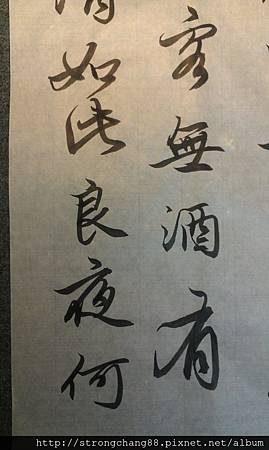 客無酒有
清如此良夜何
http://strongchang88.pixnet.net/album